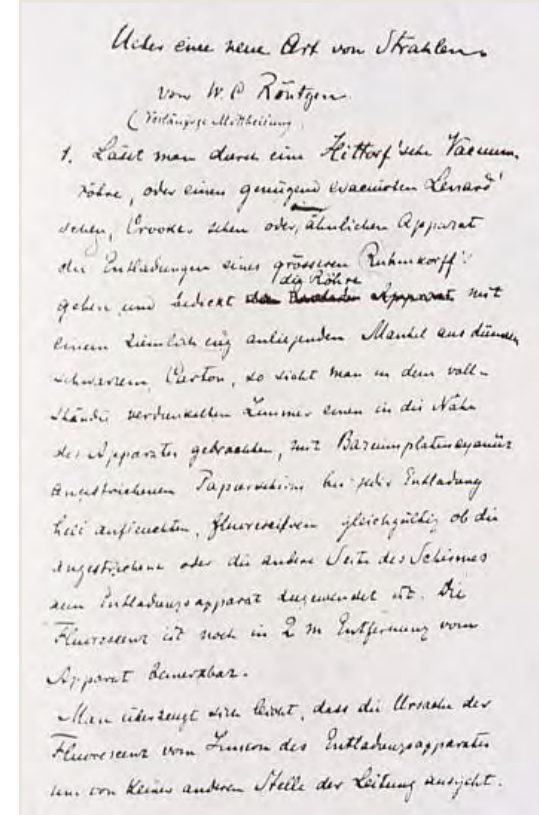 Ueber eine neue Art von Strahlen.
von W. C. Röntgen.
(Vorläufige Mittheilung)
1. Lässt man durch eine Hittorf'sche Vacuum-
röhre, oder einen genügend evacuirten Lenard'
schen, Crookes'schen oder ähnlichen Apparat
die Entladungen eines grösseren Ruhmkorff's
gehen und bedeckt die Röhre mit
einem ziemlich eng anliegenden Mantel aus dünnem
schwarzem Carton, so sieht man in dem voll-
ständig verdunkelten Zimmer einen in die Nähe
des Apparates gebrachten, mit Bariumplatincyanür
angestrichenen Papierschirm bei jeder Entladung
hell aufleuchten, fluoresciren, gleichgültig ob die
angestrichene oder die andere Seite des Schirmes
dem Entladungsapparat zugewendet ist. Die
Fluorescenz ist noch in 2 m Entfernung vom
Apparat bemerkbar.
Man überzeugt sich leicht, dass die Ursache der
Fluorescenz vom Innern des Entladungsapparates
und von keiner anderen Stelle der Leitung ausgeht.